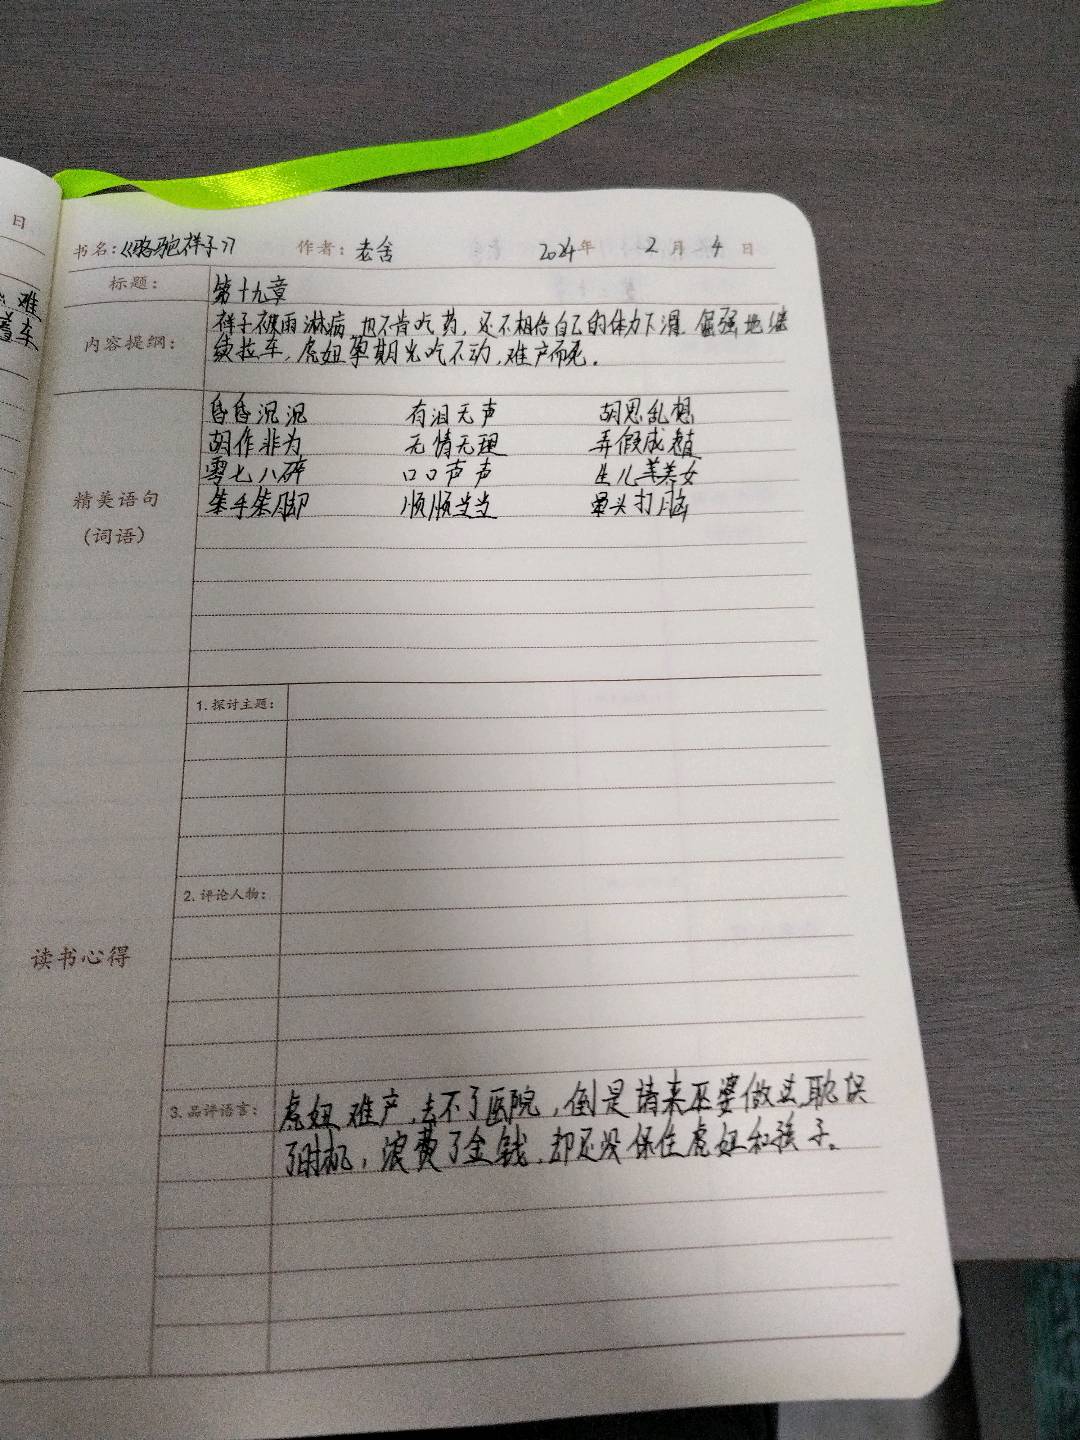 日
难
着车
书名：《骆驼祥子》 作者：老舍 2024年 2月 4日
标题： 第十九章
内容提纲： 祥子被雨淋病，也不肯吃药，还不相信自己的体力下滑，倔强地继
续拉车，虎妞孕期光吃不动，难产而死。
精美语句
（词语）
昏昏沉沉 有泪无声 胡思乱想
胡作非为 无情无理 弄假成真
零七八碎 口口声声 生儿养女
笨手笨脚 顺顺当当 晕头打脑
读书心得
1.探讨主题：
2.评论人物：
3.品评语言： 虎妞难产，去不了医院，倒是请来巫婆做法，耽误
了时机，浪费了金钱，却还没保住虎妞和孩子。